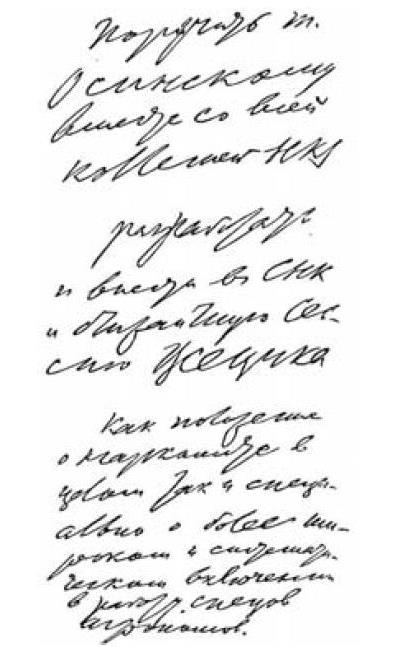 Поручить т.
Осинскому
вместе со всей
коллегией НКЗ
разработать
и внести в СНК
и ближайшую сес-
сию ВЦИКа
как положение
о наркомате в
целом так и специ-
ально о более ши-
роком и системати-
ческом включении
в работу спецов
агрономов.